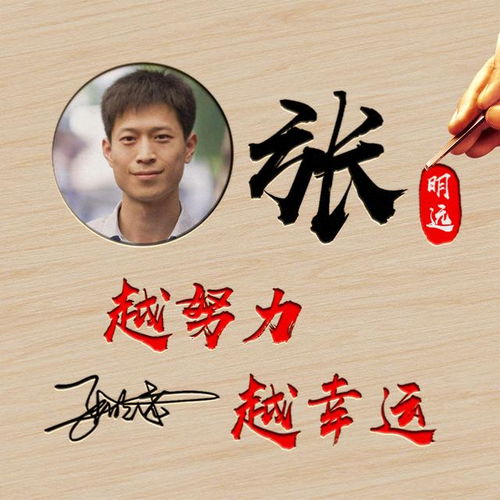 张
明远
越努力
越幸运